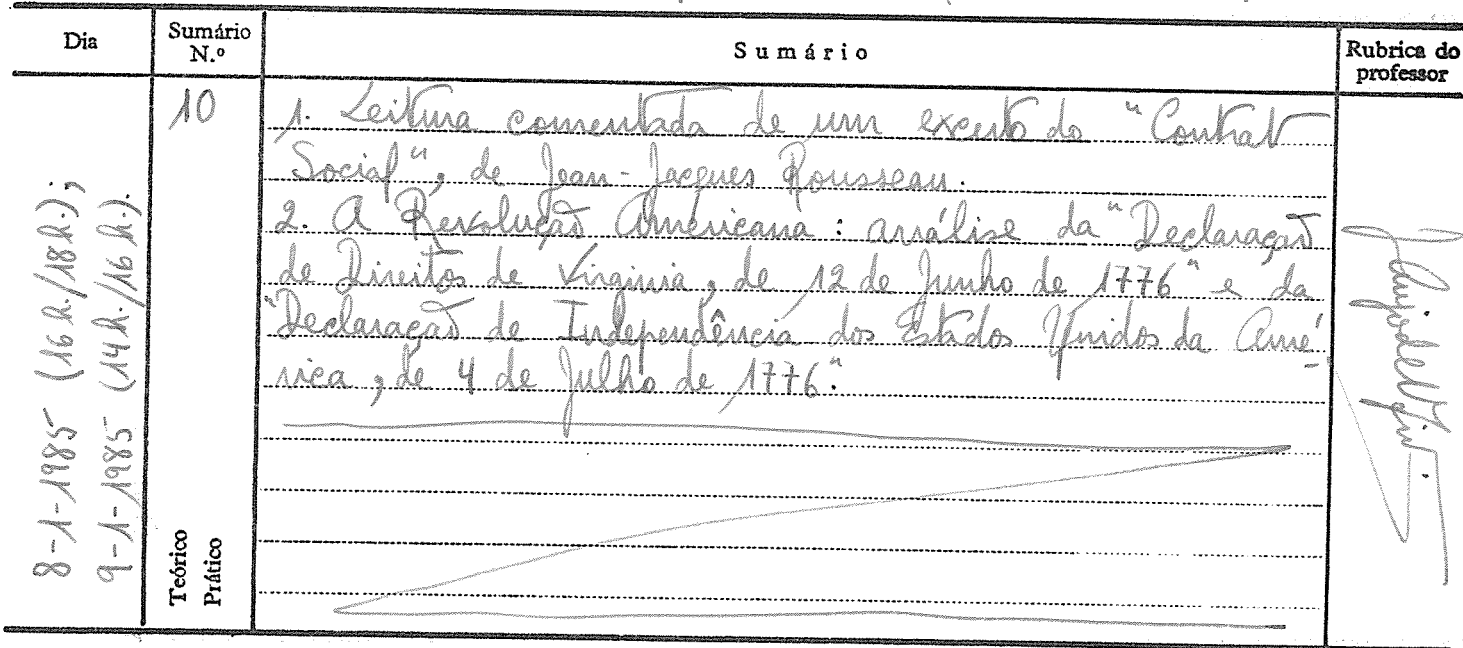 Dia
Sumário
N.º
Sumário
Rubrica do
professor
8-1-1985 (16 h./18 h.);
9-1-1985 (14 h./16 h.).
10
Teórico
Prático
1. Leitura comentada de um excerto do "Contrat
Social", de Jean-Jacques Rousseau.
2. A Revolução Americana: análise da "Declaração
de Direitos de Virginia, de 12 de Junho de 1776" e da
"Declaração de Independência dos Estados Unidos da Amé-
rica, de 4 de Julho de 1776".